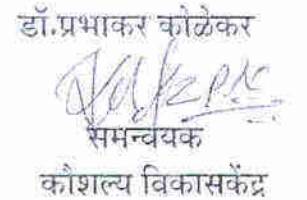 डॉ.प्रभाकर कोळेकर
समन्वयक
कौशल्य विकासकेंद्र